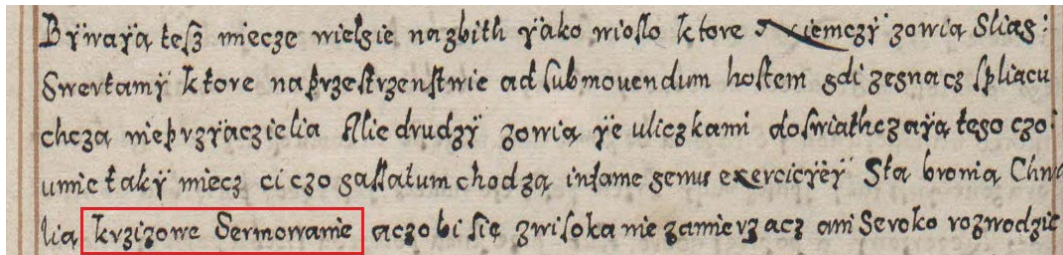 Bÿwaÿą teſz miecze wielgie nazbith ÿako wioſlo ktore Niemczÿ zowią Sliag:
Swertamÿ ktore naprzeſtrzenſtwie ad ſubmouendum hoſtem gdi zegnacz ſpliacu
chczą nieprzÿaczielia Alie drudzÿ zowią ÿe uliczkami doſwiathczaÿą tego czo
umie takÿ miecz ci czo gaſſatum chodzą infame genus exercicÿeÿ Sta bronia Chwa
lią krzizowe Sermowanie aczobi ſię zwiſoka nie zamierzacz ani Seroko rozwodzic